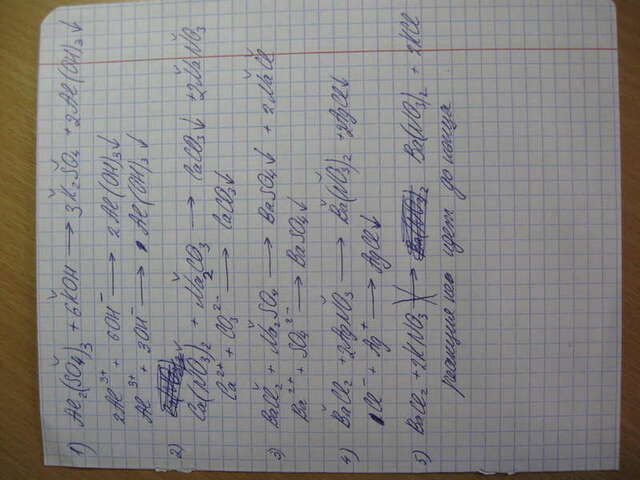 1) Al₂(SO₄)₃ + 6KOH → 3K₂SO₄ + 2Al(OH)₃↓
2Al³⁺ + 6OH⁻ → 2Al(OH)₃↓
Al³⁺ + 3OH⁻ → Al(OH)₃↓
2) Ca(NO₃)₂ + Na₂CO₃ → CaCO₃↓ + 2NaNO₃
Ca²⁺ + CO₃²⁻ → CaCO₃↓
3) BaCl₂ + Na₂SO₄ → BaSO₄↓ + 2NaCl
Ba²⁺ + SO₄²⁻ → BaSO₄↓
4) BaCl₂ + 2AgNO₃ → Ba(NO₃)₂ + 2AgCl↓
Cl⁻ + Ag⁺ → AgCl↓
5) BaCl₂ + 2KNO₃ → Ba(NO₃)₂ + 2KCl
идет до конца